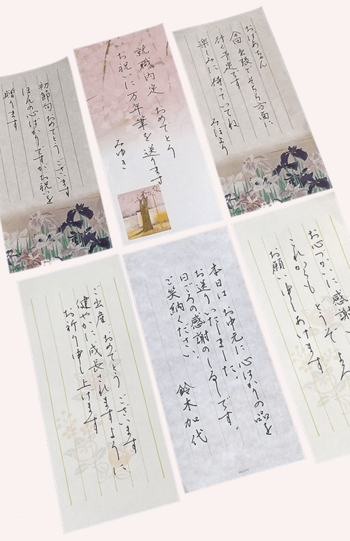 おばあちゃん
今回 出張でそちら方面に
行く予定です
楽しみに待っていてね
みほより
就職内定 おめでとう
お祝いに万年筆を送ります
みゆき
初節句 おめでとう ございます
ほんの心ばかりですがお祝を
贈ります
お心づかい 感謝
これからも どうぞ よ
お願い申しあげます
本日はお中元に心ばかりの品を
お送りいたしました。
日ごろの感謝のしるしです。
ご笑納ください。
鈴木加代
ご出産 おめでとう ございます
健やかに 成長されますように
お祈り申し上げます